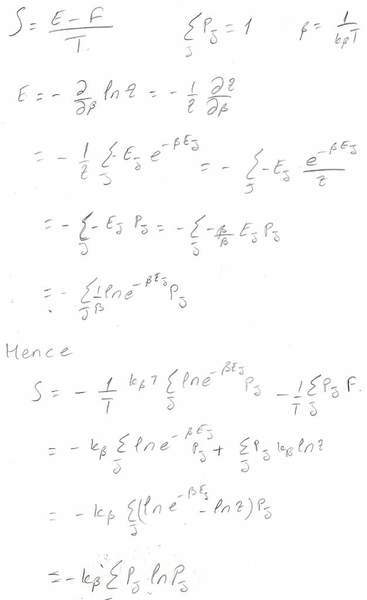 S = (E - F)/T    Σ_J P_J = 1    β = 1/(k_β T)
E = - ∂/∂β ln z = - 1/z ∂z/∂β
= - 1/z Σ_J -E_J e^{-βE_J} = - Σ_J -E_J e^{-βE_J}/z
= - Σ_J -E_J P_J = - Σ_J -β/β E_J P_J
= - Σ_J 1/β ln e^{-βE_J} P_J
Hence
S = - 1/T k_β T Σ_J ln e^{-βE_J} P_J - 1/T Σ_J P_J F.
= - k_β Σ_J ln e^{-βE_J} P_J + Σ_J P_J k_β ln z
= - k_β Σ_J (ln e^{-βE_J} - ln z) P_J
= - k_β Σ_J P_J ln P_J